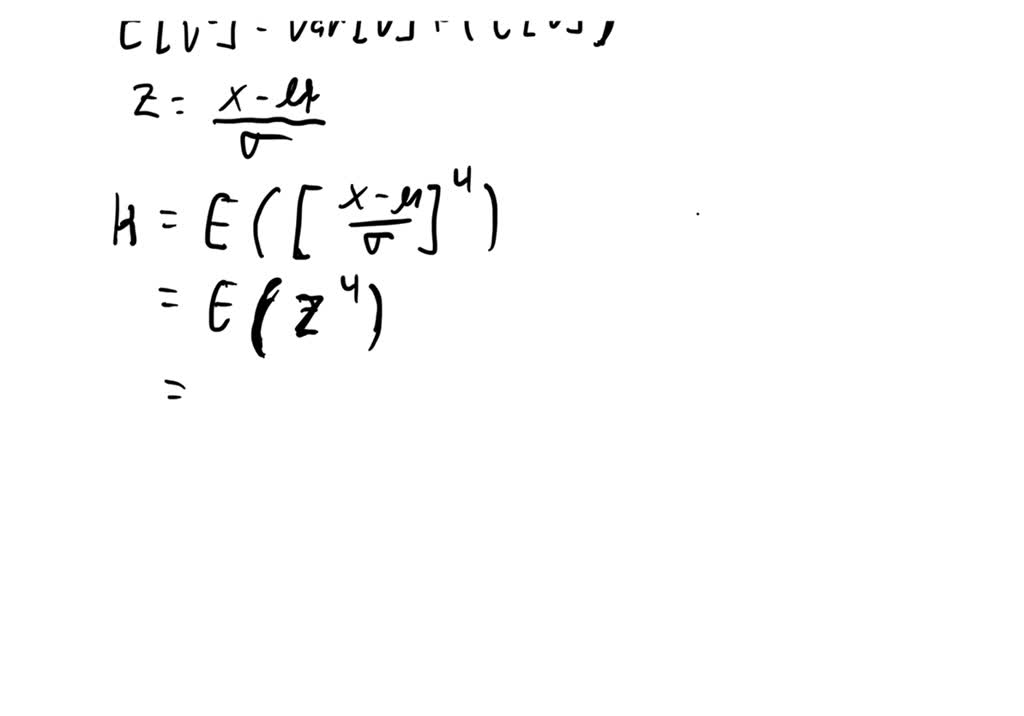 E[V²] = Var[V] + (E[V])²
Z = (x - μ)/σ
K = E([(x - μ)/σ]⁴)
= E(Z⁴)
=